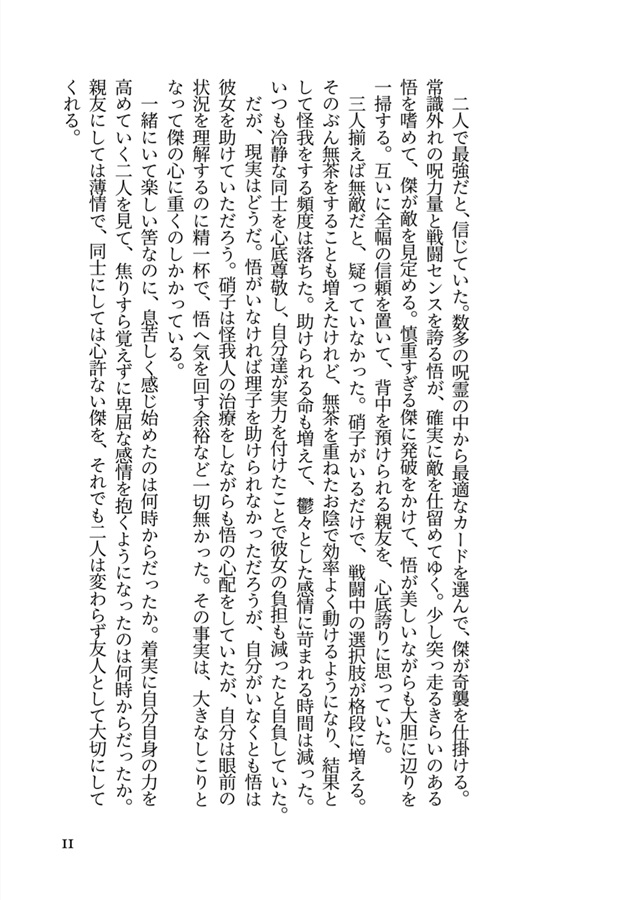 二人で最強だと、信じていた。数多の呪霊の中から最適なカードを選んで、傑が奇襲を仕掛ける。
常識外れの呪力量と戦闘センスを誇る悟が、確実に敵を仕留めてゆく。少し突っ走るきらいのある
悟を嗜めて、傑が敵を見定める。慎重すぎる傑に発破をかけて、悟が美しいながらも大胆に辺りを
一掃する。互いに全幅の信頼を置いて、背中を預けられる親友を、心底誇りに思っていた。
三人揃えば無敵だと、疑っていなかった。硝子がいるだけで、戦闘中の選択肢が格段に増える。
そのぶん無茶をすることも増えたけれど、無茶を重ねたお陰で効率よく動けるようになり、結果と
して怪我をする頻度は落ちた。助けられる命も増えて、鬱々とした感情に苛まれる時間は減った。
いつも冷静な同士を心底尊敬し、自分達が実力を付けたことで彼女の負担も減ったと自負していた。
だが、現実はどうだ。悟がいなければ理子を助けられなかっただろうが、自分がいなくとも悟は
彼女を助けていただろう。硝子は怪我人の治療をしながらも悟の心配をしていたが、自分は眼前の
状況を理解するのに精一杯で、悟へ気を回す余裕など一切無かった。その事実は、大きなしこりと
なって傑の心に重くのしかかっている。
一緒にいて楽しい筈なのに、息苦しく感じ始めたのは何時からだったか。着実に自分自身の力を
高めていく二人を見て、焦りすら覚えずに卑屈な感情を抱くようになったのは何時からだったか。
親友にしては薄情で、同士にしては心許ない傑を、それでも二人は変わらず友人として大切にして
くれる。
11